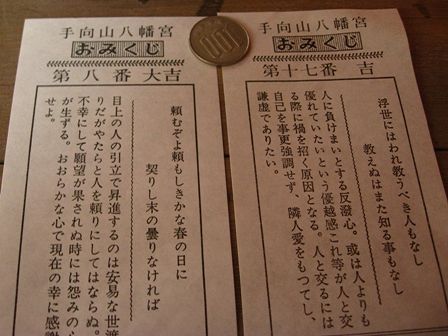 手向山八幡宮
おみくじ
第八番 大吉
頼むぞよ頼もしきかな春の日に
契りし末の曇りなければ
目上の人の引立で昇進するのは安易な世渡
りだがやたらと人を頼りにしてはならぬ。
不幸にして願望が果されぬ時には怨みの
が生ずる。おおらかな心で現在の幸に感
せよ。
100
手向山八幡宮
おみくじ
第十七番 吉
浮世にはわれ教うべき人もなし
教えぬはまた知る事もなし
人に負けまいとする反潑心。或は人よりも
優れていたいという優越感これ等が人と交
る際に禍を招く原因となる。人と交るには
自己を事更強調せず、隣人愛をもつてし、
謙虚でありたい。